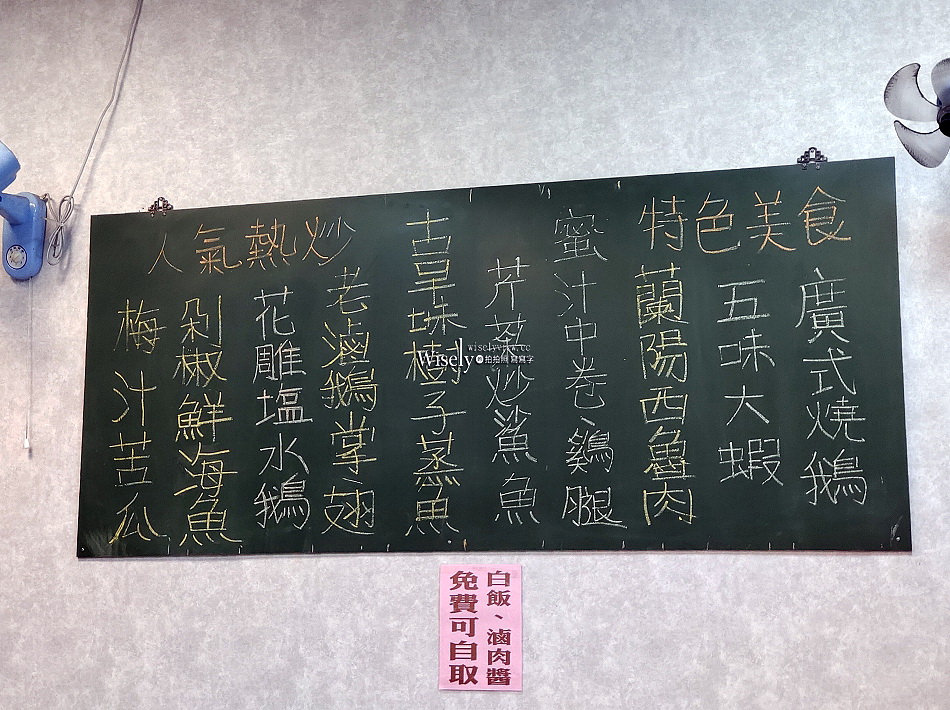 特色美食
廣式燒鵝
五味大蝦
蘭陽西魯肉
蜜汁中卷、鷄腿
芹菜炒鯊魚
古早味樹子蒸魚
人氣熱炒
老滷鵝掌翅
花雕塩水鵝
剁椒鮮海魚
梅汁苦瓜
白飯、滷肉醬
免費可自取
wiselyview.cc
Wisely拍拍照寫寫字